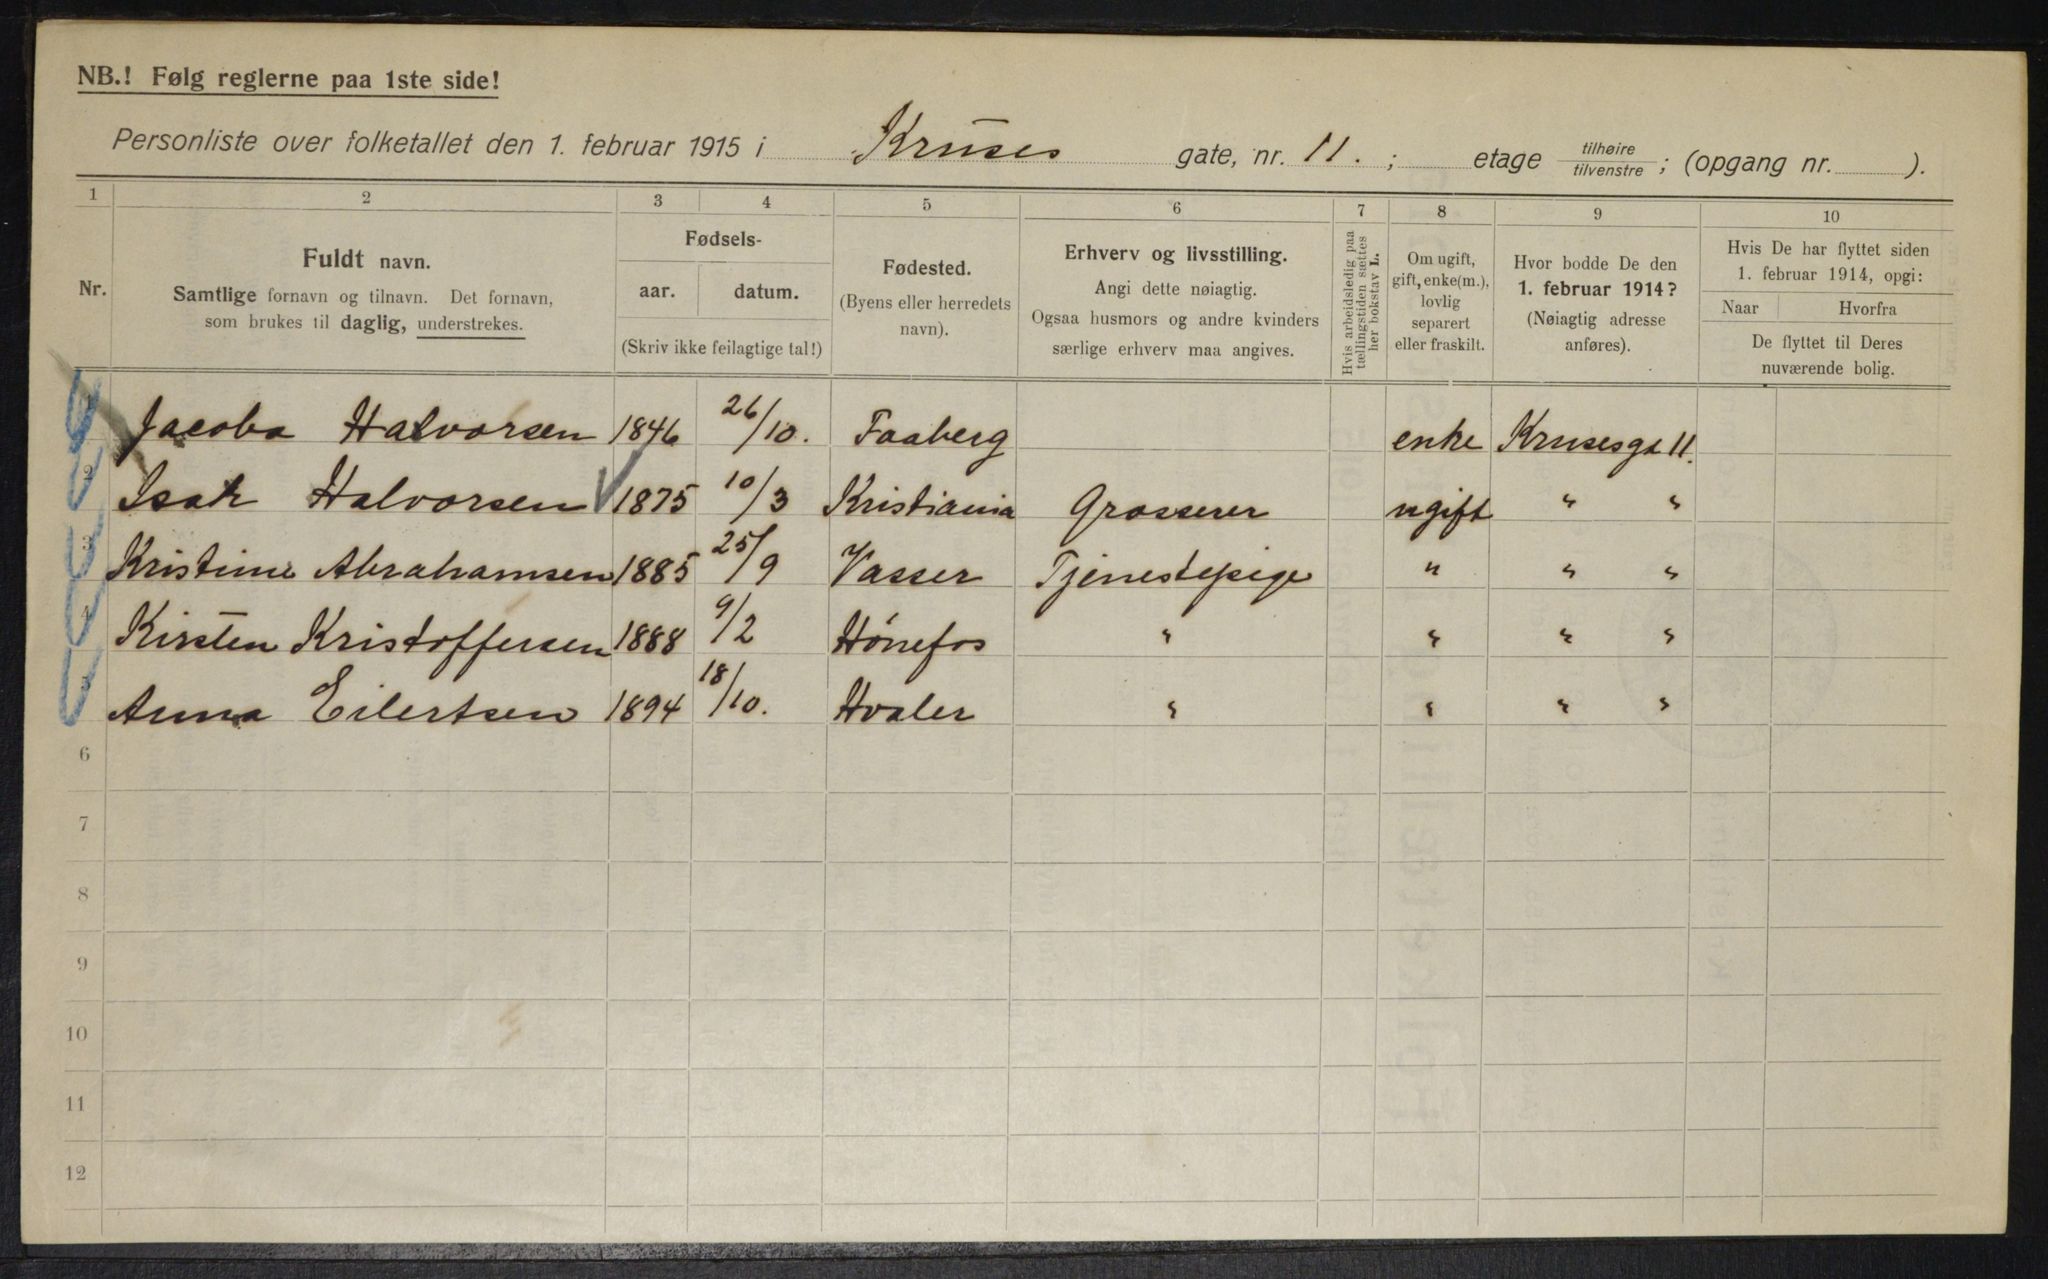 NB.! Følg reglerne paa 1ste side!
Personliste over folketallet den 1. februar 1915 i Kruses gate, nr. 11. ; etage tilhøire / tilvenstre ; (opgang nr. ).
1 2 3 4 5 6 7 8 9 10
Nr.
Fuldt navn.
Samtlige fornavn og tilnavn. Det fornavn,
som brukes til daglig, understrekes.
Fødsels-
aar. datum.
(Skriv ikke feilagtige tal!)
Fødested.
(Byens eller herredets
navn).
Erhverv og livsstilling.
Angi dette nøiagtig.
Ogsaa husmors og andre kvinders
særlige erhverv maa angives.
Hvis arbeidsledig paa
tællingstiden sættes
her bokstav L.
Om ugift,
gift, enke(m.),
lovlig
separert
eller fraskilt.
Hvor bodde De den
1. februar 1914?
(Nøiagtig adresse
anføres).
Hvis De har flyttet siden
1. februar 1914, opgi:
Naar Hvorfra
De flyttet til Deres
nuværende bolig.
Jacoba Halvorsen 1846 26/10. Faaberg enke Krusesga 11.
2 Isak Halvorsen 1875 10/3 Kristiania Grosserer ugift " "
3 Kristine Abrahamsen 1885 25/9 Vasser Tjenestepige " " "
4 Kirsten Kristoffersen 1888 9/2 Hønefos " " " "
5 Anna Eilertsen 1894 18/10. Hvaler " " " "
6
7
8
9
10
11
12